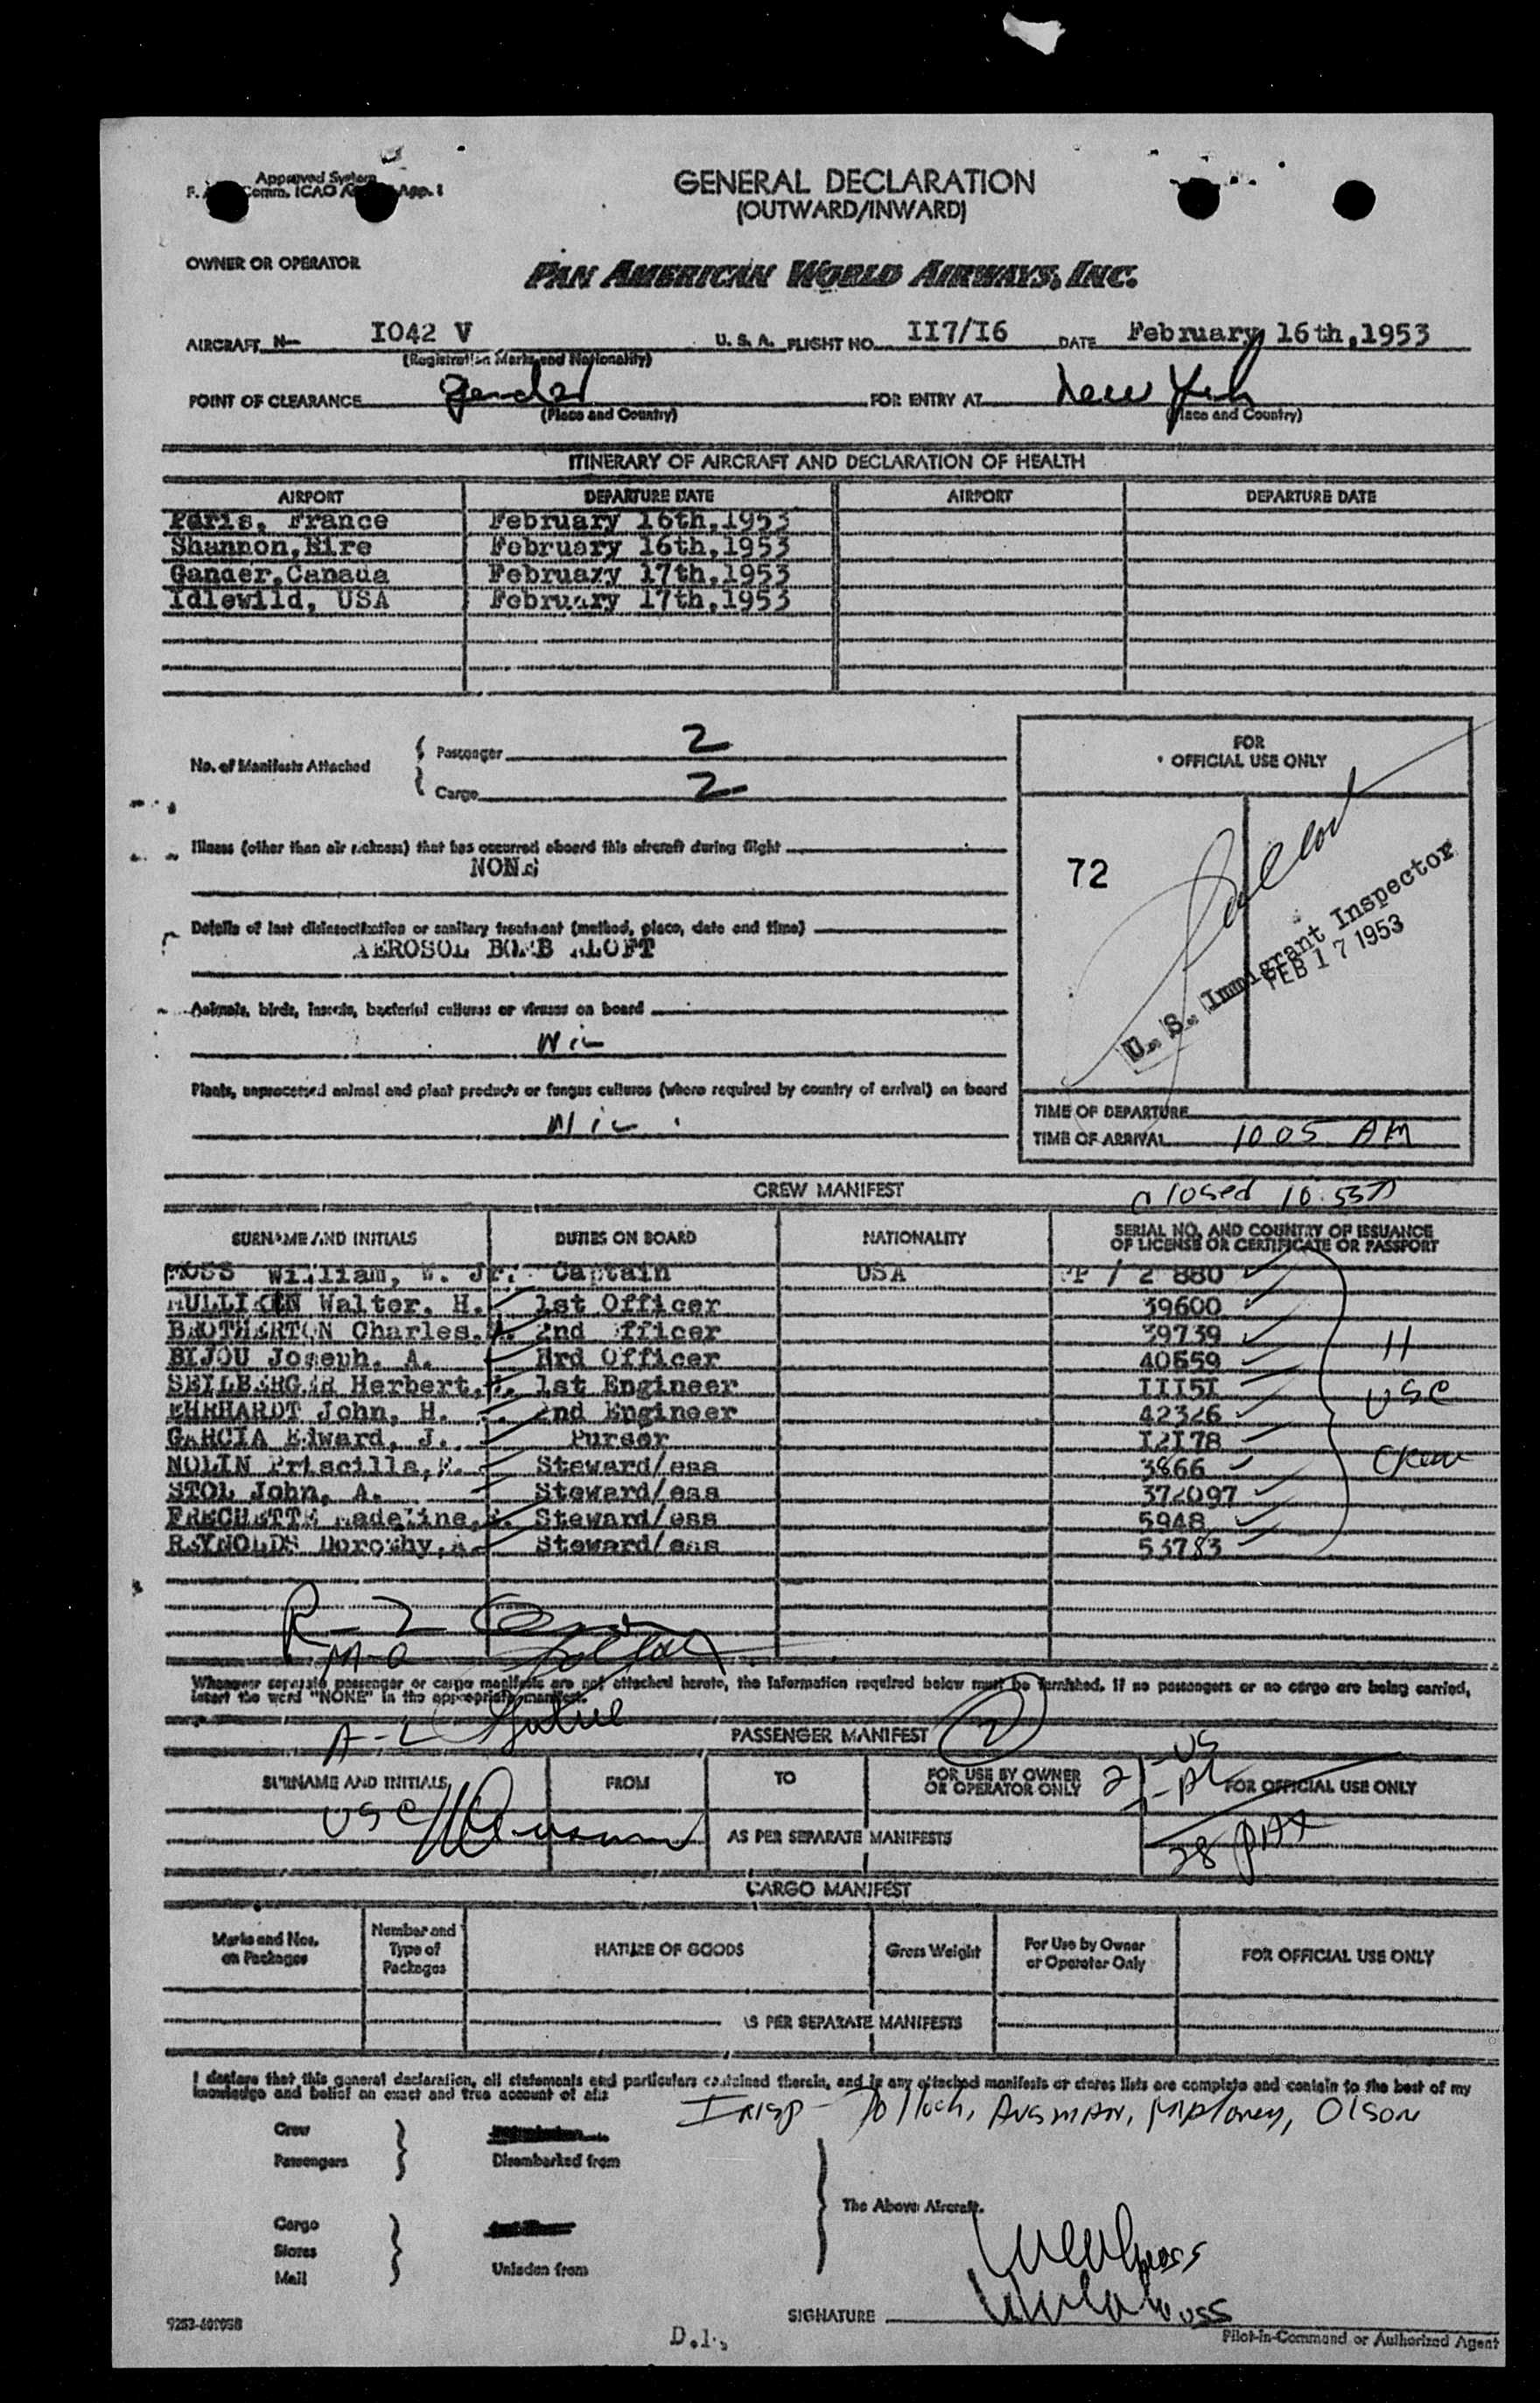 Approved System
Comm. ICAO App. 1
GENERAL DECLARATION
(OUTWARD/INWARD)
OWNER OR OPERATOR
PAN AMERICAN WORLD AIRWAYS, INC.
AIRCRAFT N- I042 V U. S. A. FLIGHT NO. II7/I6 DATE February 16th,1953
(Registration Marks and Nationality)
POINT OF CLEARANCE Gander FOR ENTRY AT New York
(Place and Country) (Place and Country)
ITINERARY OF AIRCRAFT AND DECLARATION OF HEALTH
AIRPORT DEPARTURE DATE AIRPORT DEPARTURE DATE
Paris, France February 16th,1953
Shannon,Eire February 16th,1953
Gander,Canada February 17th,1953
Idlewild, USA February 17th,1953
No. of Manifests Attached
Passenger 2
Cargo 2
FOR
OFFICIAL USE ONLY
Illness (other than air sickness) that has occurred aboard this aircraft during flight
NONE
72
U. S. Immigrant Inspector
FEB 17 1953
Details of last disinsectization or sanitary treatment (method, place, date and time)
AEROSOL BOMB ALOFT
Animals, birds, insects, bacterial cultures or viruses on board
NIL
Plants, unprocessed animal and plant products or fungus cultures (where required by country of arrival) on board
NIL
TIME OF DEPARTURE
TIME OF ARRIVAL 10 05 AM
CREW MANIFEST
closed 10:55A
SURNAME AND INITIALS DUTIES ON BOARD NATIONALITY SERIAL NO. AND COUNTRY OF ISSUANCE
OF LICENSE OR CERTIFICATE OR PASSPORT
MOSS William, W. Jr. Captain USA PP / 880
MULLIKEN Walter, H. 1st Officer 39600
BROTHERTON Charles, 2nd Officer 39739
BIJOU Joseph, A. 3rd Officer 40559
SEILBERGER Herbert, 1st Engineer III5I
EHRHARDT John, H. 2nd Engineer 42326
GARCIA Edward, J. Purser I2I78
NOLIN Priscilla, Steward/ess 3866
STOL John, A. Steward/ess 372097
FRECHETTE Madeline, Steward/ess 5948
REYNOLDS Dorothy, Steward/ess 53783
11
USC
Crew
R-2
M-0
Whenever separate passenger or cargo manifests are not attached hereto, the information required below must be furnished. If no passengers or no cargo are being carried,
insert the word "NONE" in the appropriate manifest.
A-2
PASSENGER MANIFEST
2
SURNAME AND INITIALS FROM TO FOR USE BY OWNER
OR OPERATOR ONLY FOR OFFICIAL USE ONLY
USC
AS PER SEPARATE MANIFESTS
38 PAX
CARGO MANIFEST
Marks and Nos.
on Packages
Number and
Type of
Packages
NATURE OF GOODS
Gross Weight
For Use by Owner
or Operator Only
FOR OFFICIAL USE ONLY
AS PER SEPARATE MANIFESTS
I declare that this general declaration, all statements and particulars contained therein, and in any attached manifests or stores lists are complete and contain to the best of my
knowledge and belief an exact and true account of all:
Insp - Olson
Crew
Passengers
Disembarked from
The Above Aircraft.
Cargo
Stores
Mail
Unladen from
SIGNATURE
Pilot-in-Command or Authorized Agent